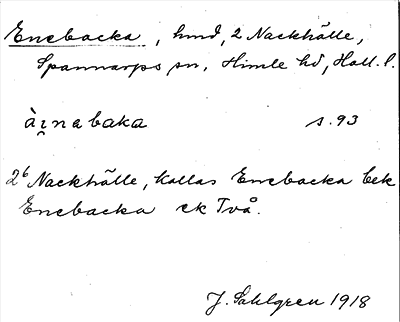 Enebacka, hmd, 2 Nackhälle,
Spannarps sn, Himle hd, Hall. l.
àɪ̯nabaka s. 93
2b Nackhälle, kallas Enebacka bek
Enebacka ek Två.
J. Sahlgren 1918